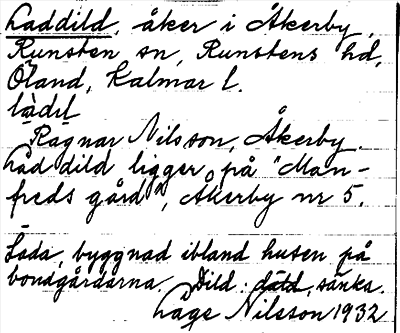 Laddild, åker i Åkerby,
Runsten sn, Runstens hd,
Öland, Kalmar l.
làdıl
Ragnar Nilsson, Åkerby.
Laddild ligger på "Man-
freds gård", Åkerby nr 5.
Lada, byggnad ibland husen på
bondgårdarna. Dild: däld, sänka.
Lage Nilsson 1932